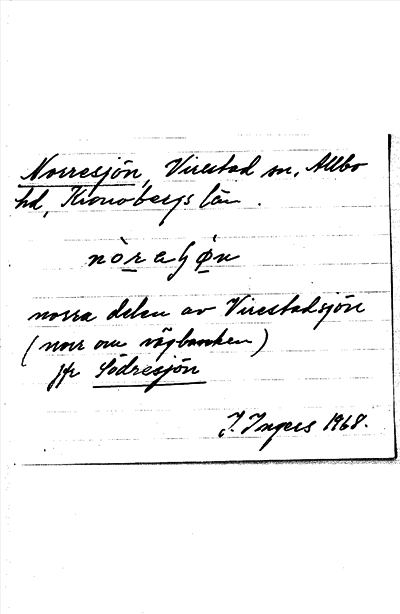 Norresjön, Virestad sn, Allbo
hd, Kronobergs län.
nòraɧø̀n
norra delen av Virestadsjön
(norr om vägbanken)
jfr Södresjön
I. Ingers 1968.